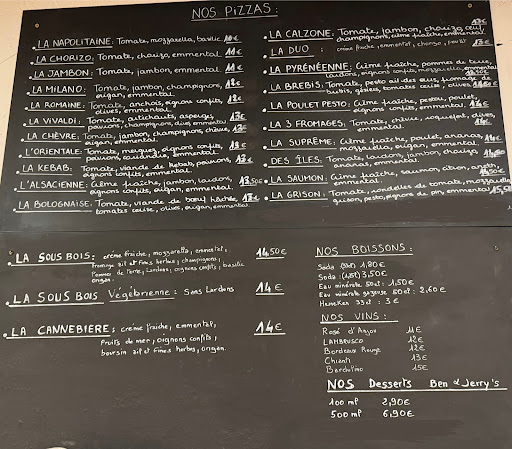 NOS PIZZAS:
LA NAPOLITAINE: Tomate, mozzarella, basilic 10€
LA CHORIZO: Tomate, chorizo, emmental 11€
LA JAMBON: Tomate, jambon, emmental. 11€
LA MILANO: Tomate, jambon, champignons, 12€
origan, emmental.
LA ROMAINE: Tomate, anchois, oignons confits, 12€
olives, emmental.
LA VIVALDI: Tomate, artichauts, asperges 13€
poivrons, champignons, olives, emmental
LA CHÈVRE: Tomate, jambon, champignons, chèvre, 13€
origan, emmental.
L'ORIENTALE: Tomate, merguez, oignons confits, 13€
poivrons, emmental.
LA KEBAB: Tomate, viande de kebab, poivrons, 13€
oignons confits, emmental.
L'ALSACIENNE: Crème fraîche, jambon, lardons, 13,50€
oignons confits, origan, emmental.
LA BOLOGNAISE: Tomate, viande de bœuf hâchée, 13€
tomates cerise, olives, origan, emmental.
LA CALZONE: Tomate, jambon, chorizo, œuf, 13€
champignons, crème fraîche, emmental.
LA DUO: crème fraîche, emmental, chorizo, 13€
LA PYRÉNÉENNE: Crème fraîche, pommes de terre,
lardons, oignons confits, mozzarella, emmental
LA BREBIS: Tomate, pesto ail des ours, fromage de
brebis, gésiers, tomates cerise, olives
LA POULET PESTO: Crème fraîche, pesto, poulet,
oignons confits, emmental. 14€
LA 3 FROMAGES: Tomate, chèvre, roquefort, olives,
emmental. 14€
LA SUPRÊME: Crème fraîche, poulet, ananas, 14€
mozzarella, origan, emmental.
DES ÎLES: Tomate, lardons, jambon, chorizo
ananas, emmental.
LA SAUMON: Crème fraîche, saumon, citron, aneth
emmental 14,50€
LA GRISON: Tomate, rondelles de tomate, mozzarella,
grison, pesto, pignons de pin, emmental 15,50
LA SOUS BOIS: crème fraîche, mozzarella, emmental, 14,50€
fromage ail et fines herbes, champignons,
Pommes de terre, lardons, oignons confits, basilic
origan.
LA SOUS BOIS Végébrienne: Sans lardons 14€
LA CANNEBIERE: crème fraîche, emmental, 14€
fruits de mer, oignons confits,
boursin ail et fines herbes, origan.
NOS BOISSONS:
Soda (33cl) 1,90€
Soda 3,50€
Eau minérale 50cl: 1,50€
Eau minérale gazeuse 50cl: 2,60€
Heineken 33cl: 3€
NOS VINS:
Rosé d'Anjou 11€
LAMBRUSCO 12€
Bordeaux Rouge 12€
Chianti 13€
Bardolino 15€
NOS Desserts Ben & Jerry's
100 ml 2,90€
500 ml 6,90€